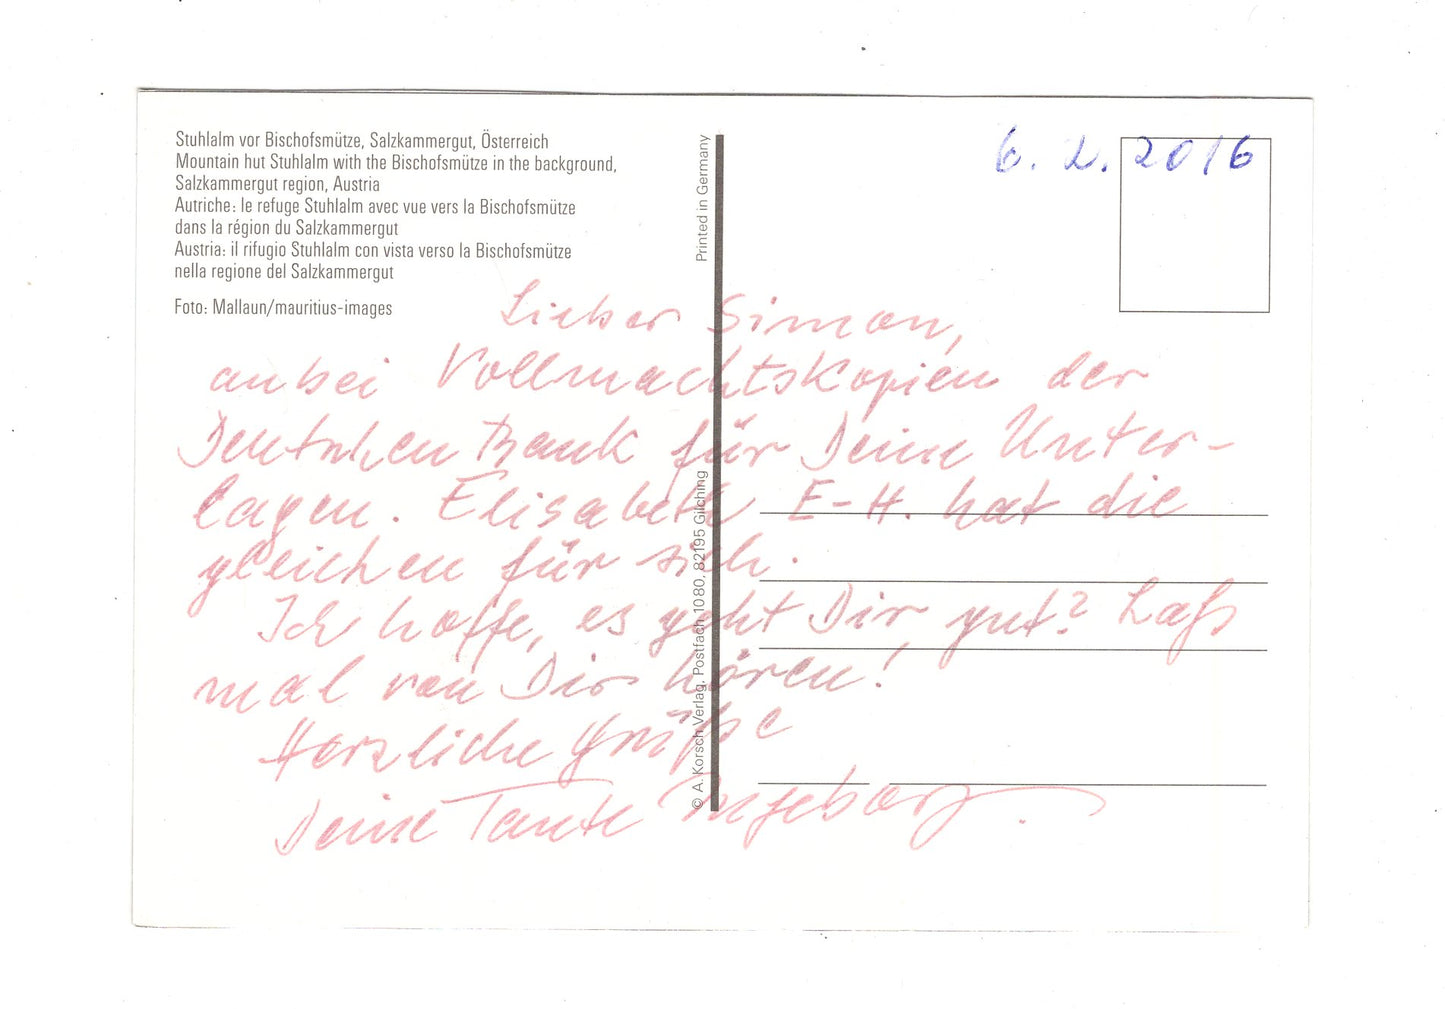 Stuhlalm vor Bischofsmütze, Salzkammergut, Österreich
Mountain hut Stuhlalm with the Bischofsmütze in the background,
Salzkammergut region, Austria
Autriche: le refuge Stuhlalm avec vue vers la Bischofsmütze
dans la région du Salzkammergut
Austria: il rifugio Stuhlalm con vista verso la Bischofsmütze
nella regione del Salzkammergut
Foto: Mallaun/mauritius-images
Printed in Germany
© A. Korsch Verlag, Postfach 1080, 82195 Gilching
6. 2. 2016
Lieber Simon,
anbei Vollmachtskopien der
Deutschen Bank für Deine Unter-
lagen. Elisabeth E-H. hat die
gleichen für sich.
Ich hoffe, es geht Dir gut? Laß
mal von Dir hören!
Herzliche Grüße
Deine Tante Ingeborg.